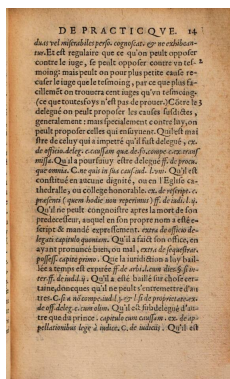 DE PRACTICQVE. 14
du. es vel miserabiles perso. cognoscat. & ne exhibean-
tur. Et est regulaire que ce qu'on peult opposer
contre le iuge, se peult opposer contre vn tes- 2
moing: mais peult on pour plus petite cause re-
cuser le iuge que le tesmoing, par ce que plus fa-
cillemẽt on trouuera cent iuges qu'vn tesmoing.
(ce que toutesfoys n'est pas de prouuer.) Cõtre le 3
delegué on peult proposer les causes susdictes,
generalement: mais specialement contre luy, on
peult proposer celles qui ensuyuent. Qu'il est mai
stre de celuy qui a impetré qu'il fust delegué, ex.
de officio. deleg. c. caussam que
missa. Qu'il a poursuuy estre delegué ff. de procu.
que omnia. C. ne quis in sua caus. iud. l. vni. Qu'il est
constitué en aucune dignité, ou en l'Eglise ca-
thedralle, ou college honorable. ex. de rescript. c.
præsenti (quem hodie non reperimus) ff. de iudi. l. ij.
Qu'il ne peult congnoistre apres la mort de son
predecesseur, auquel en son propre nom a esté e-
script & mandé expressement. extra de officio de-
legati capitulo quoniam. Qu'il a faict son office, en
ayant prononcé bien, ou mal, extra de sequestrat.
possess. capite primo. Que la iurisdiction a luy bail-
lée a temps est expirée ff. de arbi. l. cum dies. §. si in-
rer. ff. de iudi. ij. Qu'il a esté baillé sur chose cer-
taine, doncques qu'il ne peult s'entremettre d'au
tres. C. si a nõ compe. iud. l. 3. & l. si de proprietate. ex.
de off. deleg. c. cum olim. Qu'il est subdelegué d'au
tre que du prince. capitulo cum caussam. ex. de ap-
pellationibus lege à iudice. C. de iudiciis. Qu'il est